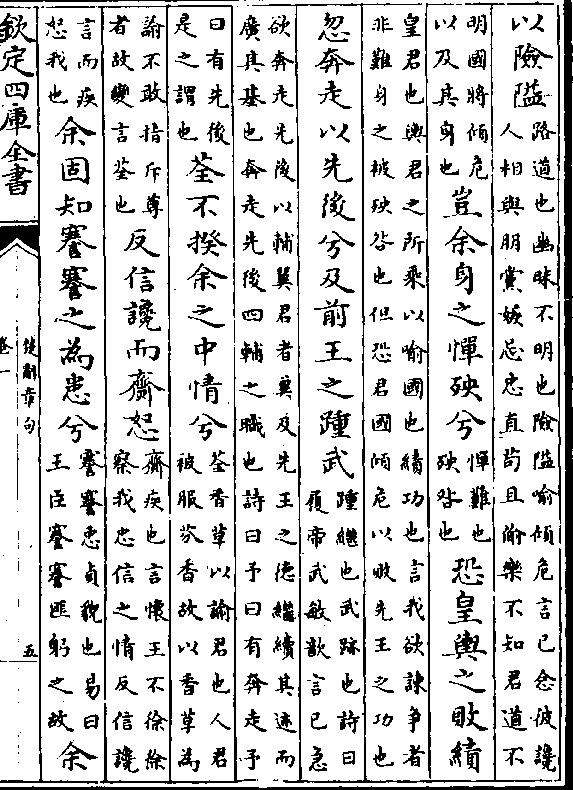 以險隘路道也幽昧不明也險隘喻傾危言已念彼讒
人相與朋黨嫉忌忠直茍且偷樂不知君道不
明國將傾危
以及其身也
豈余身之憚殃兮
憚難也
殃咎也
恐皇輿之敗績
皇君也輿君之所乗以喻國也績功也言我欲諫争者
非難身之被殃咎也但恐君國傾危以敗先王之功也
忽奔走以先後兮及前王之踵武
踵繼也武跡也詩曰
履帝武敏歆言已急
欲奔走先後以輔翼君者冀及先王之德繼續其迹而
廣其基也奔走先後四輔之職也詩曰予曰有奔走予
曰有先後
是之謂也
荃不揆余之中情兮
荃香草以諭君也人君
被服芬香故以香草為
諭不敢指斥尊
者故變言荃也
反信讒而齋怒
齋疾也言懷王不徐徐
察我忠信之情反信讒
言而疾
怒我也
余固知謇謇之為患兮
謇謇忠貞貌也易曰
王臣謇謇匪躬之故
余
欽定四庫全書
楚辭章句
卷一
五